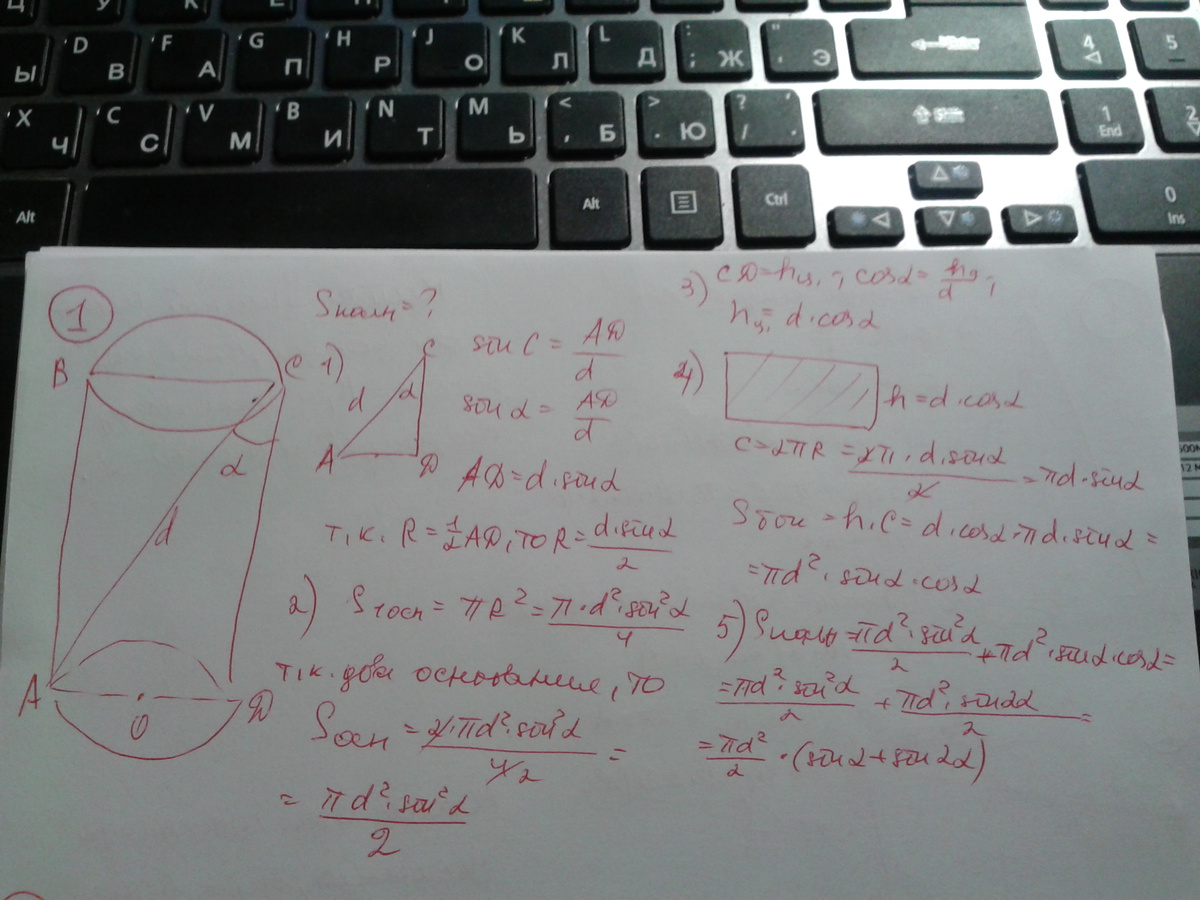 ' D F G H J K L : " 4 5
Ы В А П Р О Л ; Д Ж ' Э
X C V B N M < > ? 1 2
Ч С М И Т Ь , Б . Ю / . End
Alt Alt Ctrl 0
Ins
1
B
C
α
d
A
O
D
Sполн = ?
1)
C
d
α
A
D
sin C = AD/d
sin α = AD/d
AD = d·sinα
т.к. R = 1/2 AD, то R = d·sinα/2
2) S1осн = πR² = π·d²·sin²α/4
т,к. два основание, то
Sосн = 2·πd²·sin²α/4 2 =
= πd²·sin²α/2
3) CD = hц. ; cosα = hц/d ;
hц = d·cosα
4)
h = d·cosα
C = 2πR = 2π·d·sinα/2 = πd·sinα
Sбок = h·C = d·cosα·πd·sinα =
= πd²·sinα·cosα
5) Sполн = πd²·sin²α/2 + πd²·sinα·cosα =
= πd²·sin²α/2 + πd²·sin2α/2 =
= πd²/2 · (sinα + sin2α)